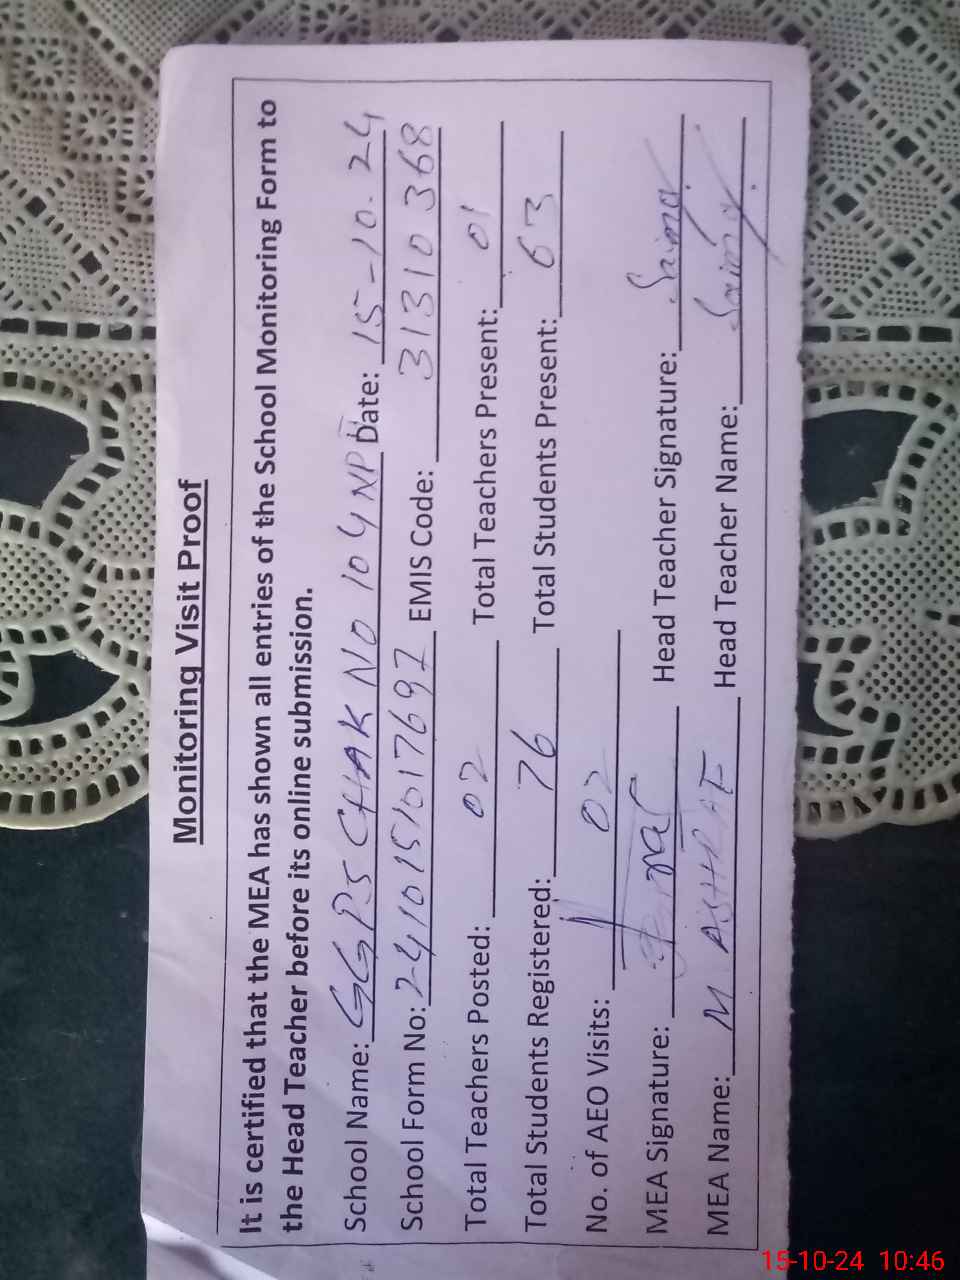 Monitoring Visit Proof
It is certified that the MEA has shown all entries of the School Monitoring Form to
the Head Teacher before its online submission.
School Name: GGPS CHAK NO 104 NP Date: 15-10-24
School Form No: 2410151017697 EMIS Code: 31310368
Total Teachers Posted: 02 Total Teachers Present: 01
Total Students Registered: 76 Total Students Present: 63
No. of AEO Visits: 02
MEA Signature: Head Teacher Signature: Saima
MEA Name: M ASHRAF Head Teacher Name: Saima
15-10-24 10:46